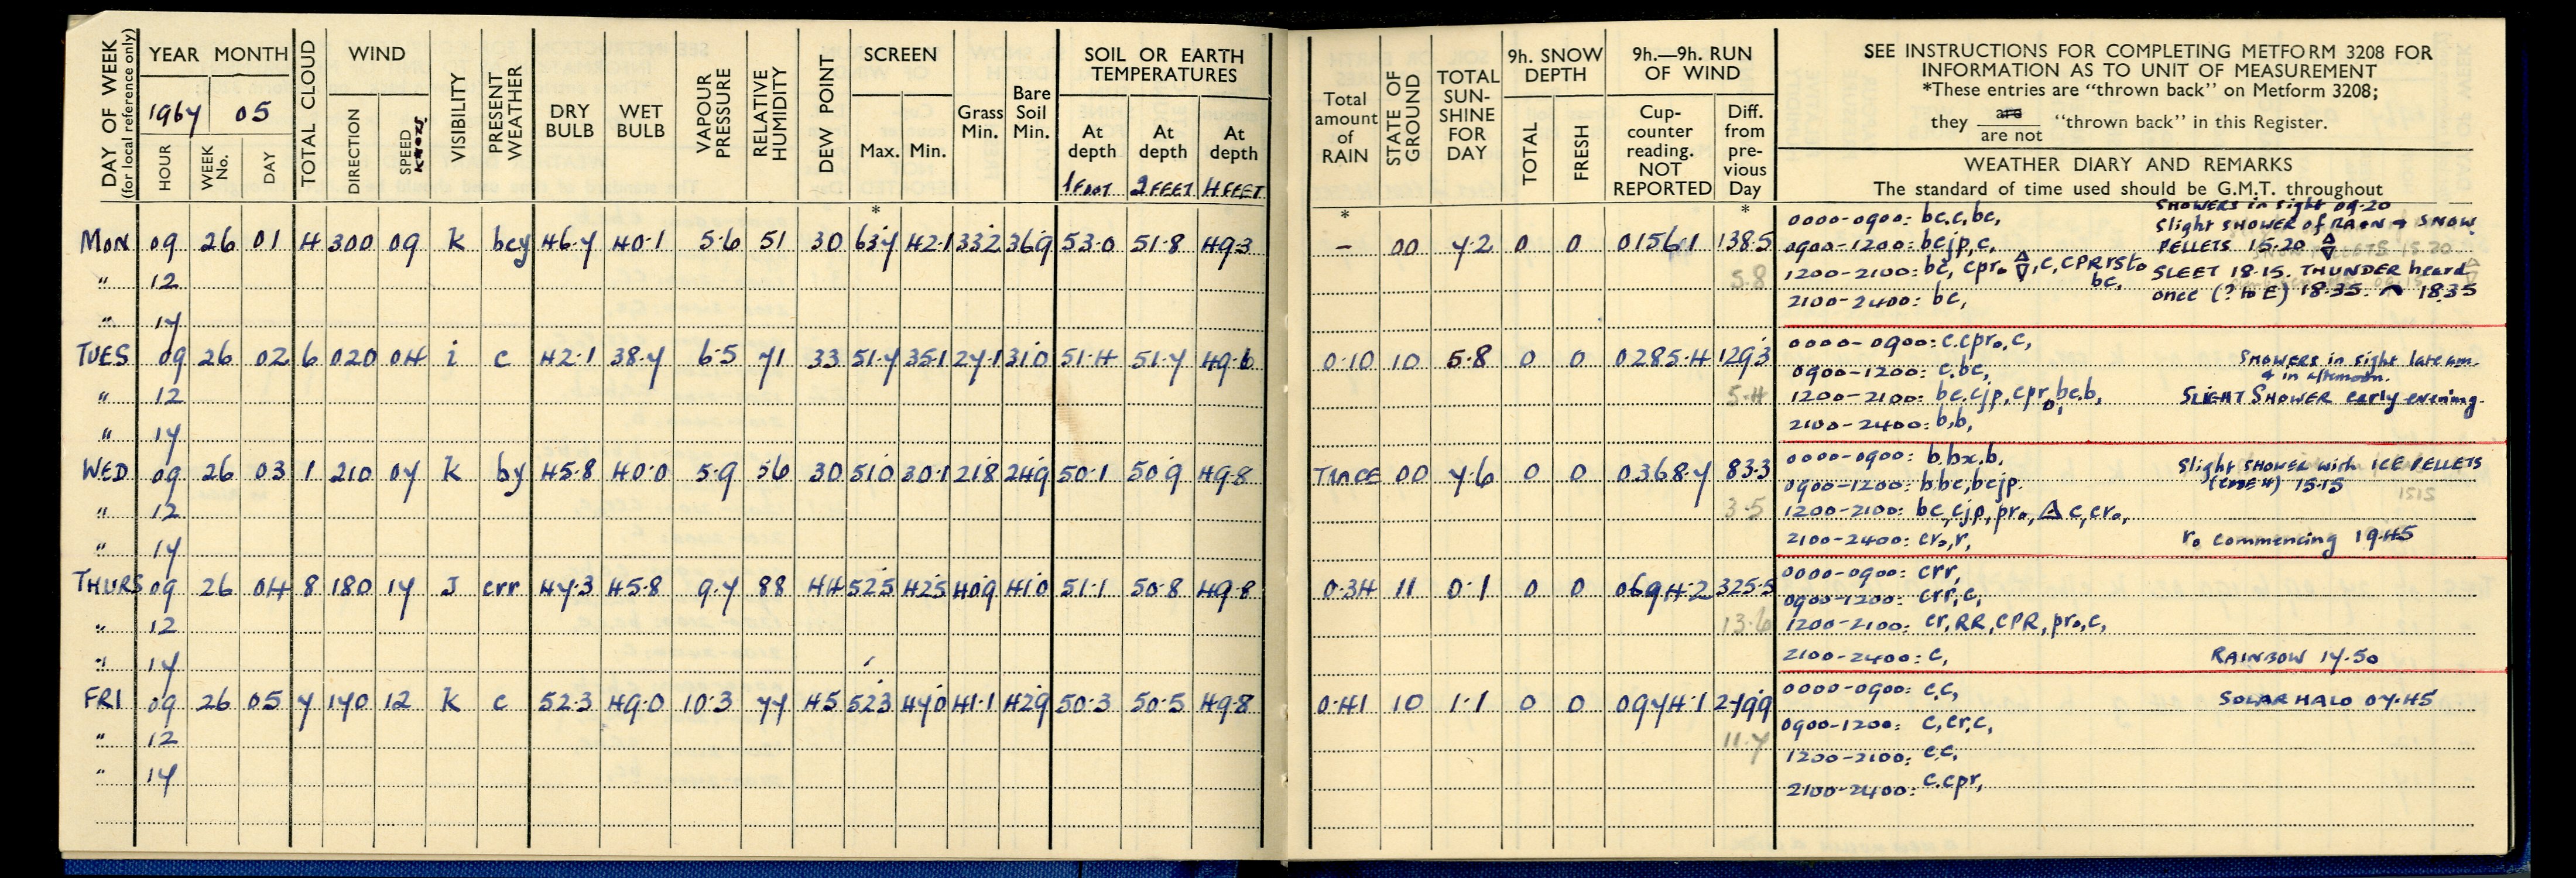 DAY OF WEEK
(for local reference only)
YEAR MONTH
1967 05
HOUR
WEEK No.
DAY
TOTAL CLOUD
WIND
DIRECTION
SPEED
KNOTS
VISIBILITY
PRESENT WEATHER
DRY BULB
WET BULB
VAPOUR PRESSURE
RELATIVE HUMIDITY
DEW POINT
SCREEN
Max. Min.
Grass Min.
Bare Soil Min.
SOIL OR EARTH
TEMPERATURES
At depth 1 FOOT
At depth 2 FEET
At depth 4 FEET
*
MON 09 26 01 4 300 09 K bcy 46.7 40.1 5.6 51 30 63.7 42.1 33.2 36.9 53.0 51.8 49.3
" 12
" 17
TUES 09 26 02 6 020 04 i c 42.1 38.7 6.5 71 33 51.7 35.1 27.1 31.0 51.4 51.7 49.6
" 12
" 17
WED 09 26 03 1 210 07 K by 45.8 40.0 5.9 56 30 51.0 30.1 21.8 24.9 50.1 50.9 49.8
" 12
" 17
THURS 09 26 04 8 180 17 J crr 47.3 45.8 9.7 88 44 52.5 42.5 40.9 41.0 51.1 50.8 49.8
" 12
" 17
FRI 09 26 05 7 170 12 K c 52.3 49.0 10.3 77 45 52.3 47.0 41.1 42.9 50.3 50.5 49.8
" 12
" 17
Total amount of RAIN
STATE OF GROUND
TOTAL SUN-SHINE FOR DAY
9h. SNOW DEPTH
TOTAL
FRESH
9h.—9h. RUN OF WIND
Cup-counter reading. NOT REPORTED
Diff. from pre-vious Day
* *
– 00 7.2 0 0 0156.1 138.5
5.8
0.10 10 5.8 0 0 0285.4 129.3
5.4
TRACE 00 7.6 0 0 0368.7 83.3
3.5
0.34 11 0.1 0 0 0694.2 325.5
13.6
0.41 10 1.1 0 0 0974.1 279.9
11.7
SEE INSTRUCTIONS FOR COMPLETING METFORM 3208 FOR
INFORMATION AS TO UNIT OF MEASUREMENT
*These entries are "thrown back" on Metform 3208;
they are / are not "thrown back" in this Register.
WEATHER DIARY AND REMARKS
The standard of time used should be G.M.T. throughout
0000-0900: bc,c,bc,
0900-1200: bcjp,c,
1200-2100: bc, cpr₀ △▽,c,CPRrst₀ bc,
2100-2400: bc,
SHOWERS in sight 09.20
Slight SHOWER of RAIN + SNOW
PELLETS 15.20 △▽
SLEET 18.15. THUNDER heard
once (? to E) 18.35. ⌒ 1835
0000-0900: c.cpr₀,c,
0900-1200: c,bc,
1200-2100: bc,cjp,cpr₀,bc,b,
2100-2400: b,b,
SHOWERS in sight late am.
& in afternoon.
SLIGHT SHOWER early evening.
0000-0900: b,bx,b,
0900-1200: b,bc,bcjp.
1200-2100: bc,cjp,pr₀,△ c,cr₀,
2100-2400: cr₀,r,
Slight SHOWER with ICE PELLETS
1515
r₀ commencing 19.45
0000-0900: crr,
0900-1200: crr,c,
1200-2100: cr,RR,CPR,pr₀,c,
2100-2400: c,
RAINBOW 17.50
0000-0900: c,c,
0900-1200: c,cr,c,
1200-2100: c,c,
2100-2400: c.cpr,
SOLAR HALO 07.45